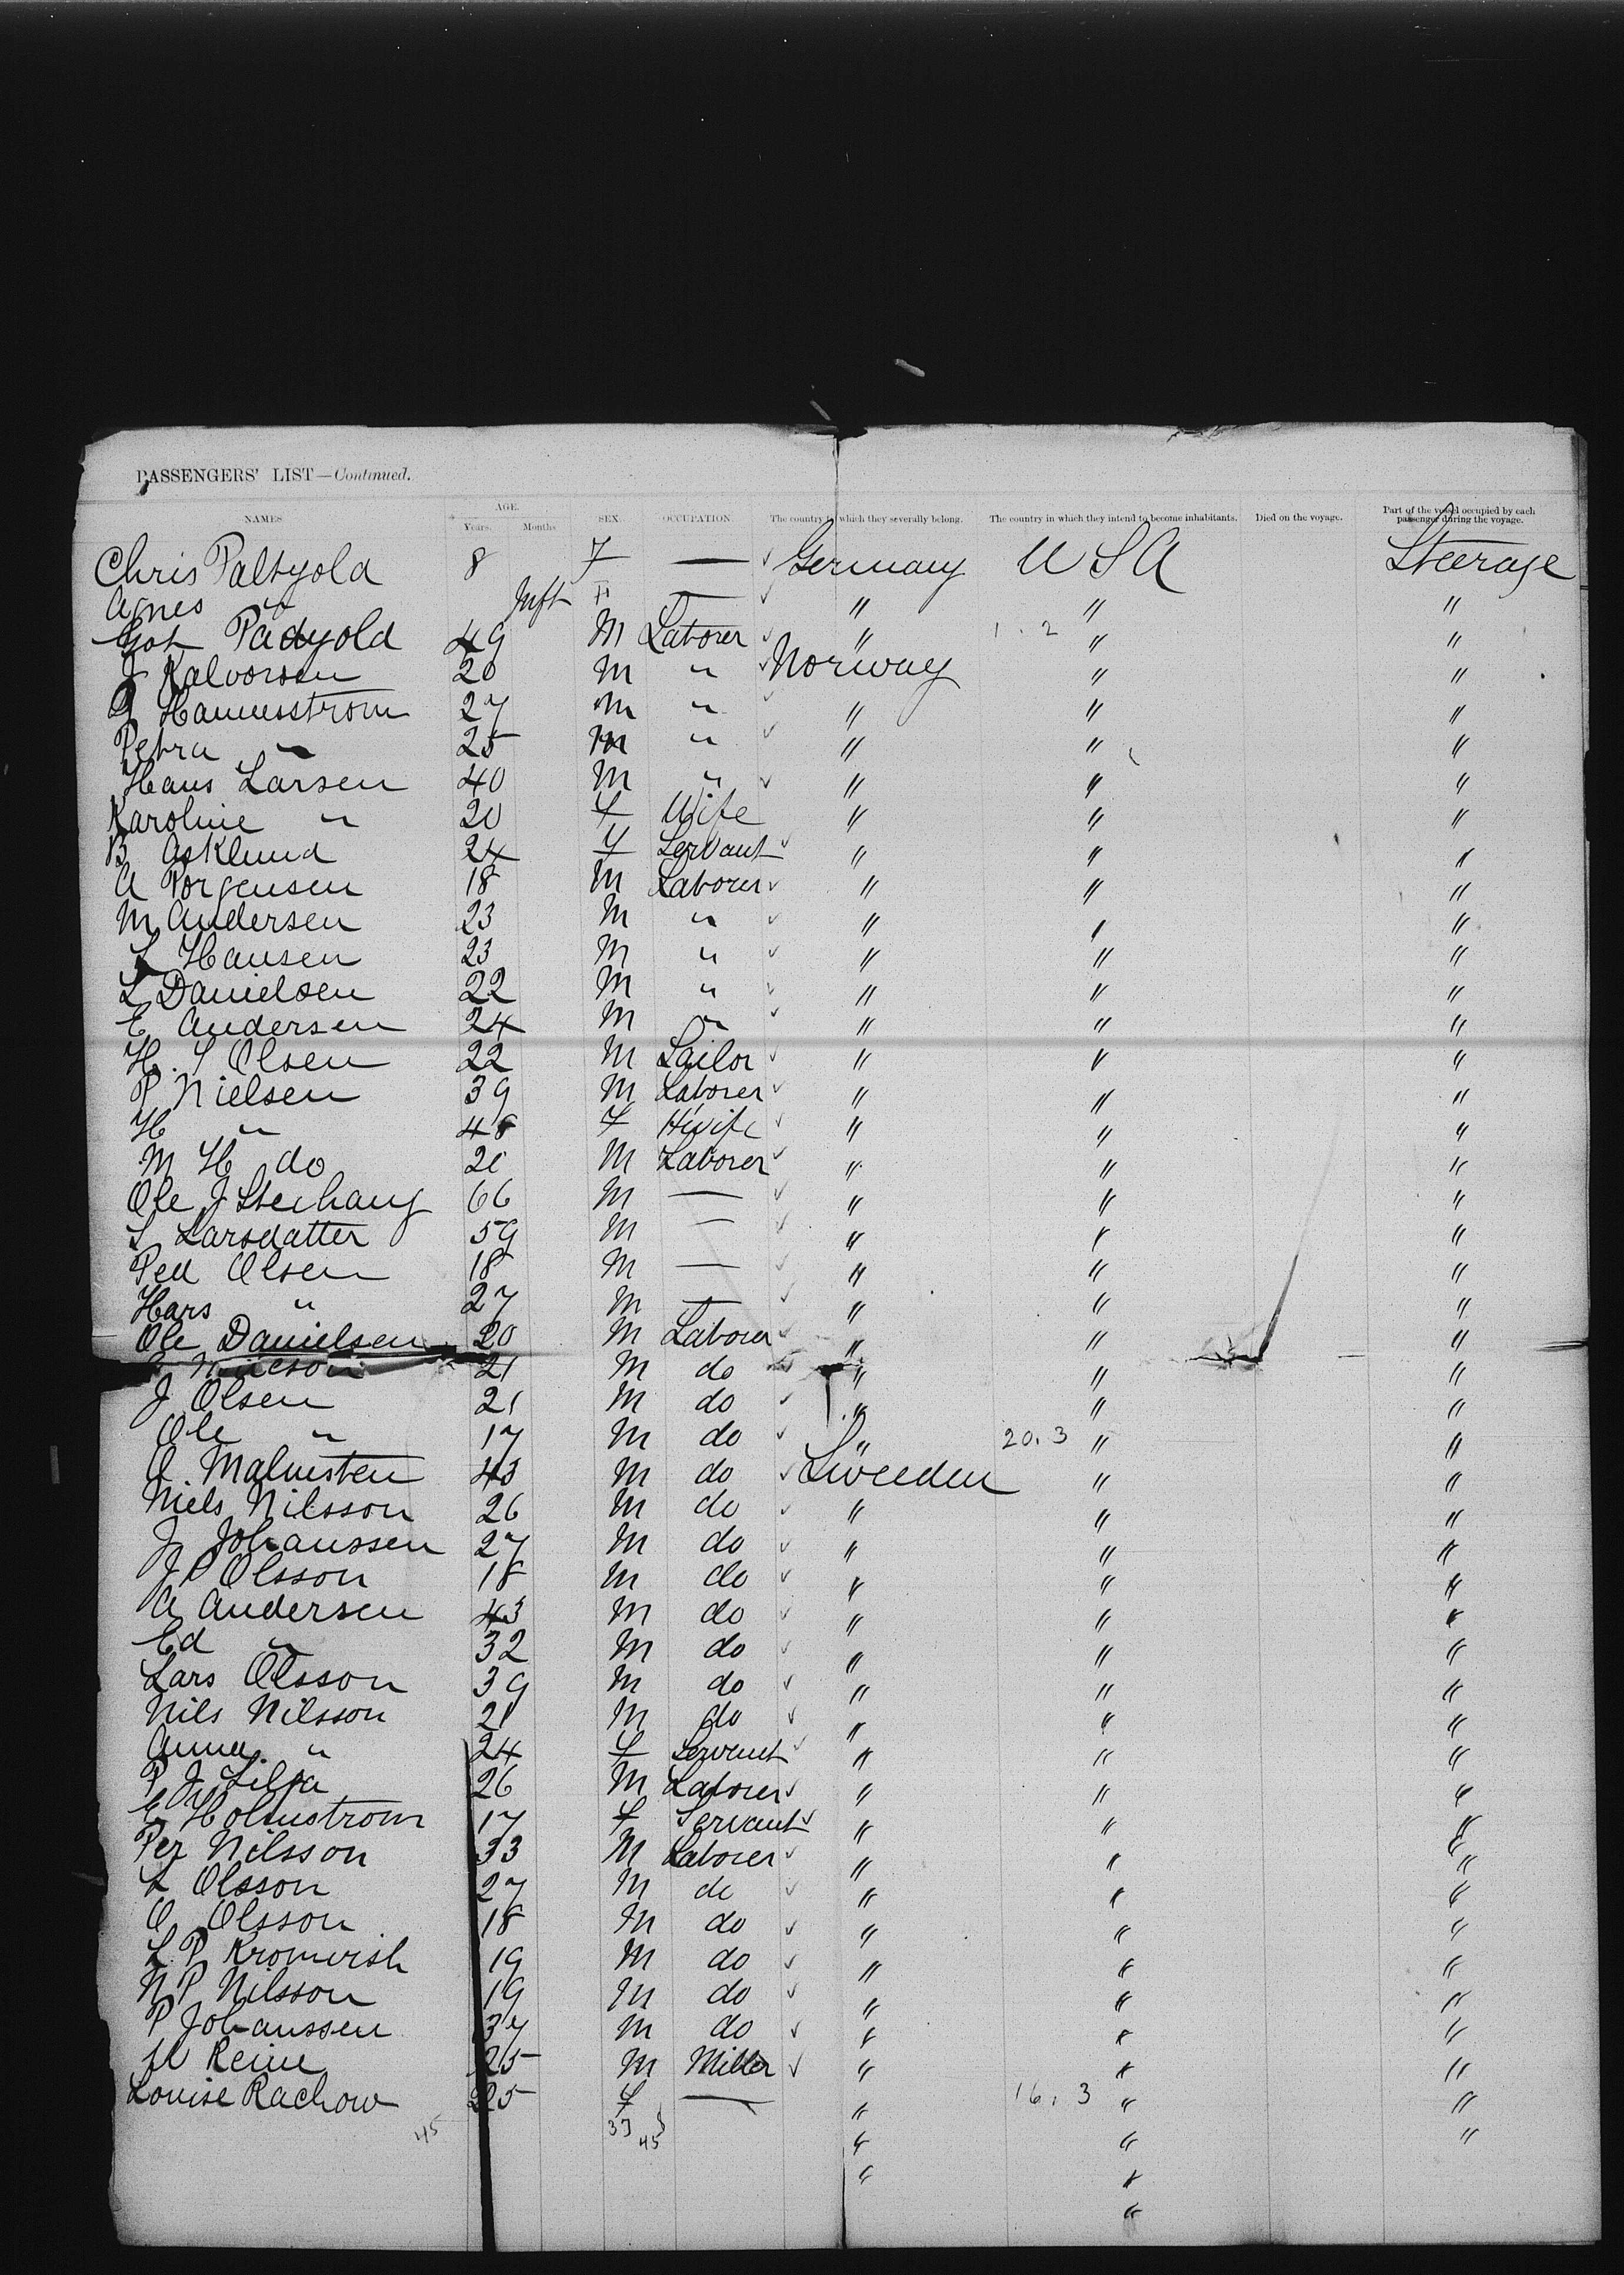 PASSENGERS' LIST—Continued.
NAMES AGE. Years. Months SEX. OCCUPATION The country to which they severally belong. The country in which they intend to become inhabitants. Died on the voyage. Part of the vessel occupied by each passenger during the voyage.
Chris 8 F — ✓ Germany U S A Steerage
Agnes " Inft " — ✓ " " "
49 M Laborer ✓ " 1. 2 " "
J Kalvorsen 20 M " ✓ Norway " "
27 M " ✓ " " "
Petra " 25 M " ✓ " " "
Hans Larsen 40 M " ✓ " " "
Karoline " 20 f Wife " " "
B Asklund 24 f Servant ✓ " " "
A Porgensen 18 M Laborer ✓ " " "
M Andersen 23 M " ✓ " " "
L Hansen 23 M " ✓ " " "
L Danielsen 22 M " ✓ " " "
E Andersen 24 M " ✓ " " "
H. S Olsen 22 M Sailor ✓ " " "
P Nielsen 39 M Laborer ✓ " " "
H " 48 f Hwife ✓ " " "
M H do 20 M Laborer ✓ " " "
Ole J 66 M — ✓ " " "
S Larsdatter 59 M — ✓ " " "
Ped Olsen 18 M — ✓ " " "
Hars " 27 M — ✓ " " "
Ole Danielsen 20 M Laborer ✓ " " "
21 M do ✓ " " "
J Olsen 21 M do ✓ " " "
Ole " 17 M do ✓ " 20. 3 " "
A. Malmsten 43 M do ✓ Sweeden " "
Niels Nilsson 26 M do ✓ " " "
J Johanssen 27 M do ✓ " " "
J P Olsson 18 M do ✓ " " "
A Andersen 43 M do ✓ " " "
Ed " 32 M do ✓ " " "
Lars Olsson 39 M do ✓ " " "
Nils Nilsson 21 M do ✓ " " "
Anna. " 24 f Servant ✓ " " "
P J Lilja 26 M Laborer ✓ " " "
E Holmstrom 17 f Servant ✓ " " "
Per Nilsson 33 M Laborer ✓ " " "
L Olsson 27 M do ✓ " " "
O Olsson 18 M do ✓ " " "
L. P. 19 M do ✓ " " "
N P Nilsson 19 M do ✓ " " "
P Johanssen 37 M do ✓ " " "
Reine 25 M Miller ✓ " " "
Louise Rachow 25 f — " 16. 3 " "
45 37 8 45 " " "
" "
"